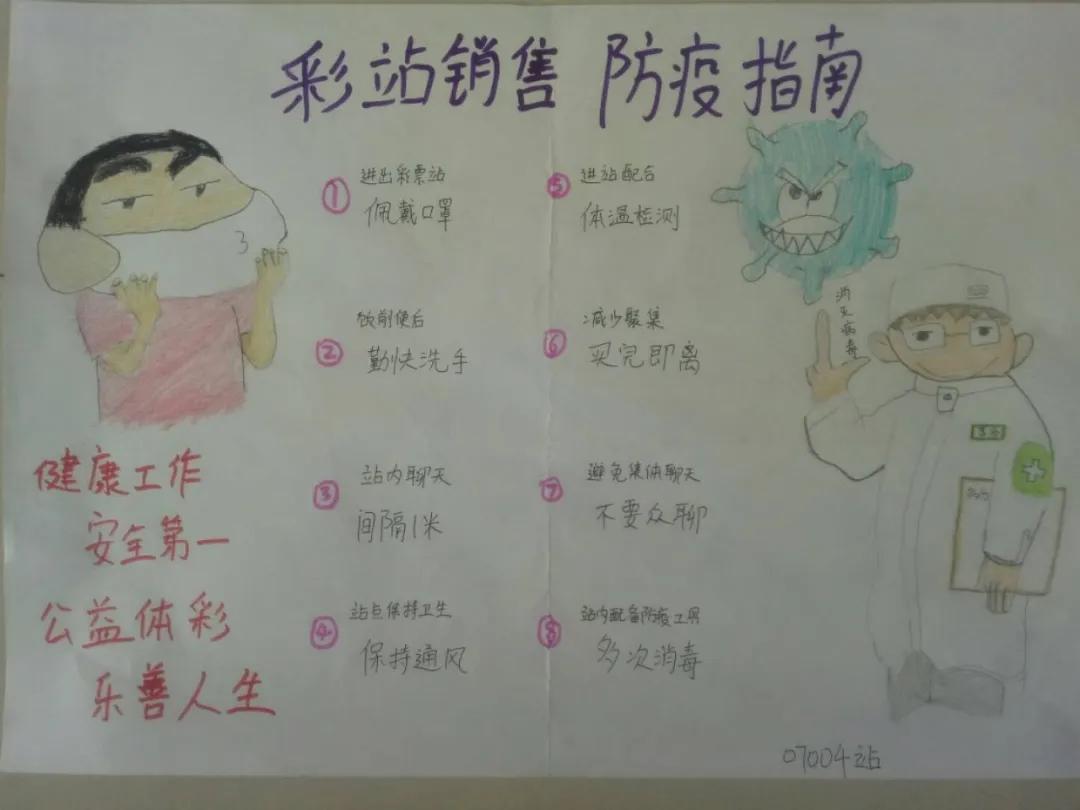 彩站销售 防疫指南
① 进出彩票站
佩戴口罩
② 饭前便后
勤快洗手
③ 站内聊天
间隔1米
④ 站点保持卫生
保持通风
⑤ 进站配合
体温检测
⑥ 减少聚集
买完即离
⑦ 避免集体聊天
不要众聊
⑧ 站内配备防疫工具
多次消毒
消灭病毒
健康工作
安全第一
公益体彩
乐善人生
07004站